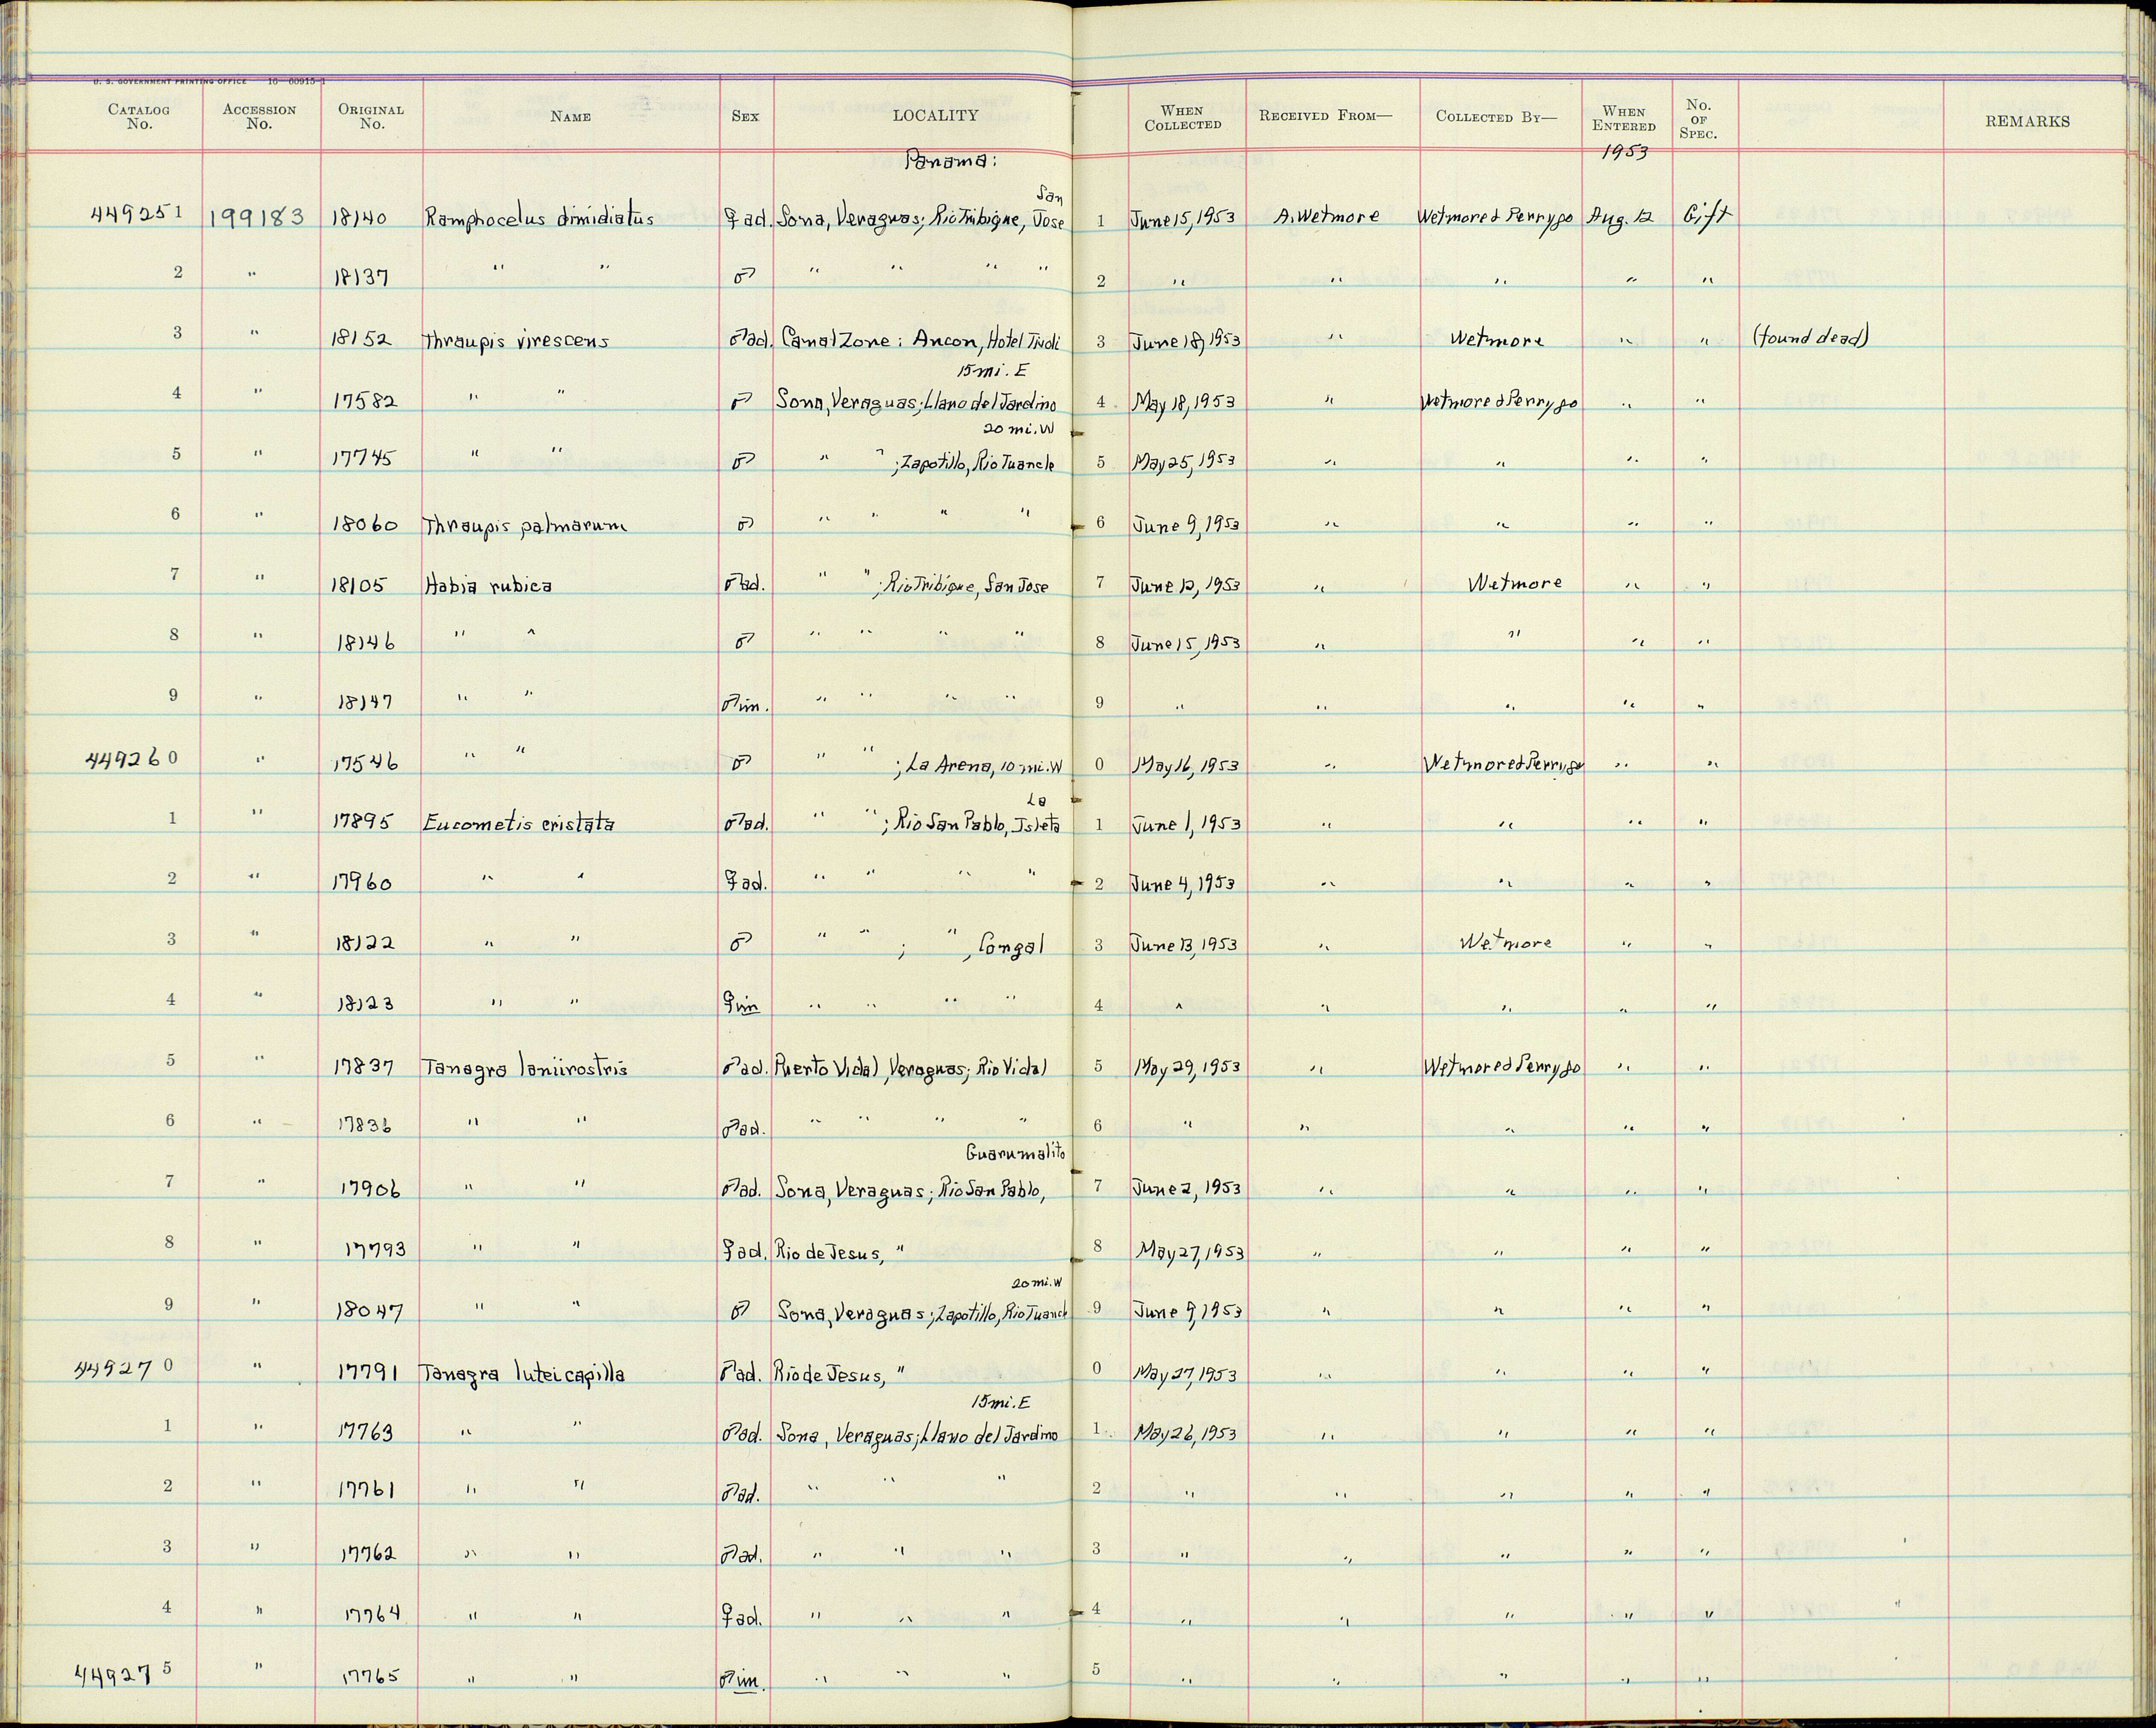 U. S. GOVERNMENT PRINTING OFFICE 16—60915-1
CATALOG No. ACCESSION No. ORIGINAL No. NAME SEX LOCALITY WHEN COLLECTED RECEIVED FROM— COLLECTED BY— WHEN ENTERED No. OF SPEC. REMARKS
Panama: 1953
San
449251 199183 18140 Ramphocelus dimidiatus ♀ ad. Sona, Veraguas; Rio Tribique, Jose 1 June 15, 1953 A. Wetmore Wetmore & Perrygo Aug. 12 Gift
2 " 18137 " " ♂ " " " " 2 " " " " "
3 " 18152 Thraupis virescens ♂ ad. Canal Zone: Ancon, Hotel Tivoli 3 June 18, 1953 " Wetmore " " (found dead)
15 mi. E
4 " 17582 " " ♂ Sona, Veraguas; Llano del Jardino 4 May 18, 1953 " Wetmore & Perrygo " "
20 mi. W
5 " 17745 " " ♂ " "; Zapotillo, Rio Tuancle 5 May 25, 1953 " " " "
6 " 18060 Thraupis palmarum ♂ " " " " 6 June 9, 1953 " " " "
7 " 18105 Habia rubica ♂ ad. " "; Rio Tribique, San Jose 7 June 12, 1953 " Wetmore " "
8 " 18146 " " ♂ " " " " 8 June 15, 1953 " " " "
9 " 18147 " " ♂ im. " " " " 9 " " " " "
449260 " 17546 " " ♂ " "; La Arena, 10 mi. W 0 May 16, 1953 " Wetmore & Perrygo " "
La
1 " 17895 Eucometis cristata ♂ ad. " "; Rio San Pablo, Isleta 1 June 1, 1953 " " " "
2 " 17960 " " ♀ ad. " " " " 2 June 4, 1953 " " " "
3 " 18122 " " ♂ " " ; ", Congal 3 June 13, 1953 " Wetmore " "
4 " 18123 " " ♀ im " " " " 4 " " " " "
5 " 17837 Tanagra laniirostris ♂ ad. Puerto Vidal, Veraguas; Rio Vidal 5 May 29, 1953 " Wetmore & Perrygo " "
6 " 17836 " " ♂ ad. " " " " 6 " " " " "
Guarumalito
7 " 17906 " " ♂ ad. Sona, Veraguas; Rio San Pablo, 7 June 2, 1953 " " " "
8 " 17793 " " ♀ ad. Rio de Jesus, " 8 May 27, 1953 " " " "
20 mi. W
9 " 18047 " " ♂ Sona, Veraguas; Zapotillo, Rio Tuancle 9 June 9, 1953 " " " "
449270 " 17791 Tanagra luteicapilla ♂ ad. Rio de Jesus, " 0 May 27, 1953 " " " "
15 mi. E
1 " 17763 " " ♂ ad. Sona, Veraguas; Llano del Jardino 1 May 26, 1953 " " " "
2 " 17761 " " ♂ ad. " " " 2 " " " " "
3 " 17762 " " ♂ ad. " " " 3 " " " " "
4 " 17764 " " ♀ ad. " " " 4 " " " " "
449275 " 17765 " " ♂ im. " " " 5 " " " " "